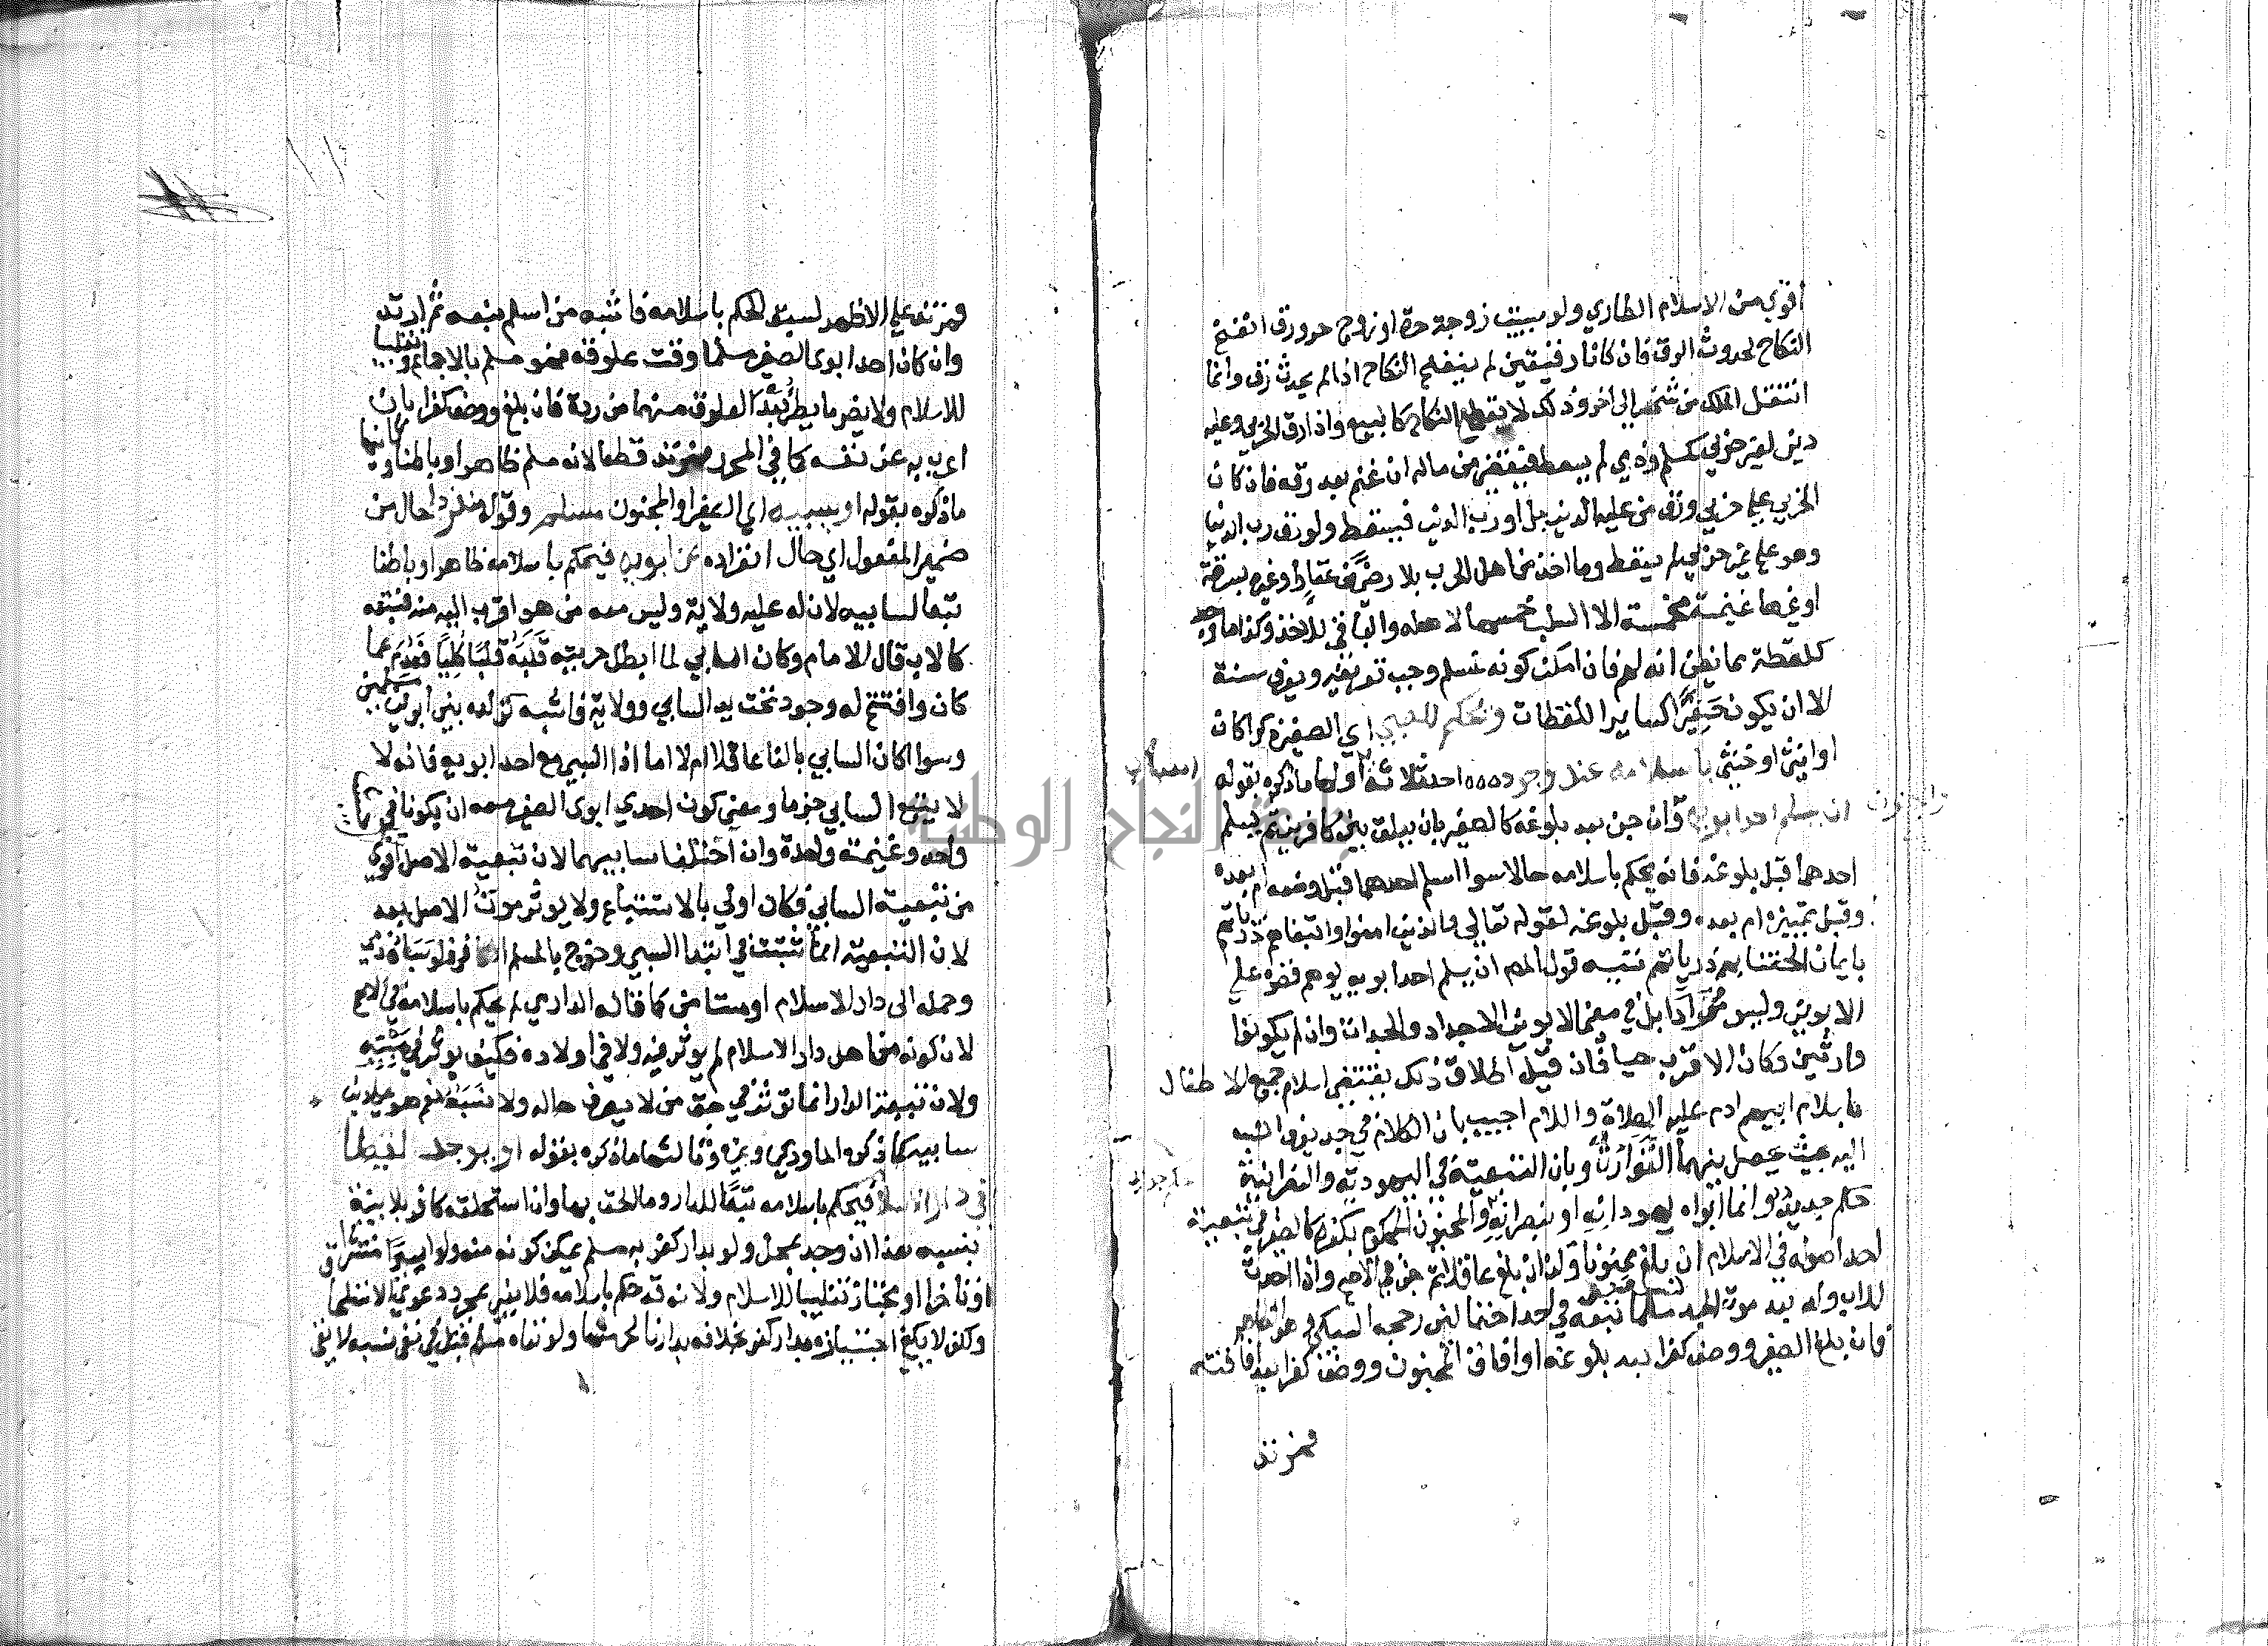 أقوي من الاسلام الطاري ولو سبيت زوجة حرة او زوج حر ورق انفسخ
النكاح لحدوث الرق فان كانا رقيقين لم ينفسخ النكاح اذا لم يحدث رق وانما
انتقل الملك من شخص إلى آخر وذلك لا يقطع النكاح كالبيع واذا رق الحربي وعليه
دين لغير حربي كمسلم وذمي لم يسقط فيقضي من ماله ان غنم بعد رقه فان كان
الحربي علي حربي ورق من عليه الدين بل أو رب الدين فيسقط ولو رق رب الدين
وهو علي غير حربي لم يسقط وما اخذ من اهل الحرب بلا رضي من عقار أو غيره بسرقة
او غيرها غنيمة مخمسة الا السلب خمسها لاهله والباقي للاخذ وكذا ما وجد
كلقطة مما يظن انه لهم فان امكن كونه لمسلم وجب تعريفه ويعرف سنة
الا ان يكون حقيرا كسائر اللقطات ويحكم للصبي اي الصغير ذكرا كان
او انثي او خنثي باسلامه عند وجود احد ثلاثة أولها ما ذكره بقوله
ان يسلم احد ابويه وان جن بعد بلوغه كالصغير بان يبلق بين كافرين ثم يسلم
احدهما قبل بلوغه فانه يحكم باسلامه حالا سوا اسلم احدهما قبل وضعه ام بعده
وقبل تمييزه ام بعده وقبل بلوغه لقوله تعالي والذين امنوا واتبعاهم ذرياتهم
بايمان الحقنا بهم ذرياتهم تنبيه قول المص ان يسلم احد ابويه يوهم قصره علي
الابوين وليس مرادا بل في معنى الابوين الاجداد والجدات وان لم يكونوا
وارثين وكان الاقرب حيا فان قيل اطلاق ذلك يقتضي اسلام جميع الاطفال
باسلام ابيهم ادم عليه الصلاة والسلام اجيب بان الكلام في جد يعرف النسب
اليه بحيث يحصل بينهما التوارث وبان التبعية في اليهودية والنصرانية
حكم جديد وانما أبواه يهودانه او ينصرانه والمجنون المحكوم بكفره كالصغير في تبعية
احد أصوله في الاسلام ان بلغ مجنونا وكذا ان بلغ عاقلا ثم جن في الاصح واذا احدث
للاب ولد بعد موت الجد مسلما تبعه في احد احتمالين رجحه السبكي وهو الظاهر
فان بلغ الصغير ووصف كفرا بعد بلوغه او افاق المجنون ووصف كفرا بعد افاقته
فمرتد
فمرتد علي الاظهر لسبق الحكم باسلامه فاشبه من اسلم بنفسه ثم ارتد
وان كان احد ابوي الصغير مسلما وقت علوقه فهو مسلم بالاجماع وتغليبا
للاسلام ولا يضر ما يطرأ بعد العلوق منهما من ردة فان بلغ ووصف كفرا بان
اعرب به عن نفسه كما في المحرر فمرتد قطعا لانه مسلم ظاهرا وباطنا وثانيها
ما ذكره بقوله او يسبيه اي الصغير او المجنون مسلم وقوله منفردا حال من
ضمير المفعول اي حال انفراده عن ابويه فيحكم باسلامه ظاهرا وباطنا
تبعا لسابيه لان له عليه ولاية وليس معه من هو اقرب اليه منه فتبعه
كالاب قال الامام وكان السابي لما ابطل حريته قلبه قلبا كليا فعدم عما
كان وافتتح له وجود تحت يد السابي وولاية فاشبه تولده بين أبوين مسلمين
وسوا كان السابي بالغا عاقلا ام لا اما اذا السبي مع احد ابويه فانه لا
لا يتبع السابي جزما ومعني كون احدي ابوي الصغير معه ان يكونا في
واحد وغنيمة واحدة وان اختلفا سابيهما لان تبعية الاصل اقوي
من تبعية السابي فكان اولي بالاستتباع ولا يوثر موت الاصل بعد
لان التبعية انما تثبت في ابتدا السبي وخرج بالمسلم الكافر فلو سباه ذمي
وحمله الى دار الاسلام او مستامن كما قاله الداري لم يحكم باسلامه في الاصح
لان كونه من اهل دار الاسلام لم يوثر فيه ولا في اولاده فكيف يوثر في مسبيه
ولان تبعية الدار انما توثر في حق من لا يعرف حاله ولا نسبه نعم هو علي دين
سابيه كما ذكره الماوردي وغيره وثالثها ما ذكره بقوله او يوجد لقيطا
في دار الاسلام فيحكم باسلامه تبعا للدار وما الحق بها وان استلحقه كافر بلا بينة
بنسبه هذا ان وجد بمحل ولو بدار كفر به مسلم يمكن كونه منه ولو اسيرا منتشرا
او تاجرا او مجتازا تغليبا للاسلام ولانه قد حكم باسلامه فلا يغير بمجرد دعوي الاستلحاق
ولكن لا يكفي اجتيازه بدار كفر بخلافه بدارنا لحرمتها ولو نفاه مسلم قبل في نفي نسبه لا في